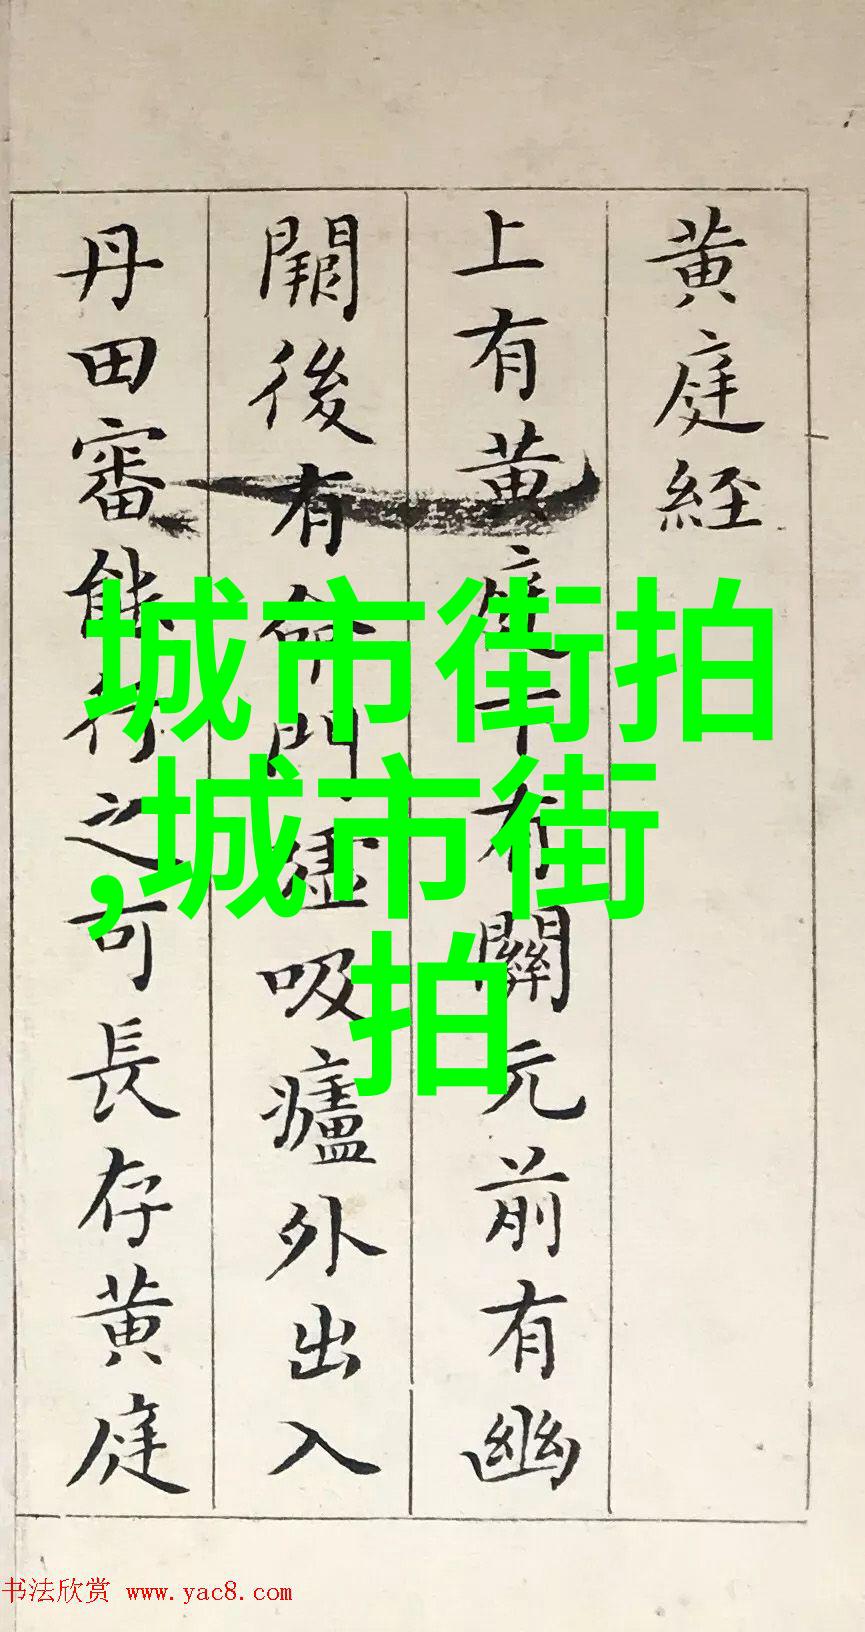 黄庭経
上有黄庭下有關元前有幽
闕後有命門嘘吸廬外出入
丹田審能行之可長存黄庭
城市街拍
,城市街
拍
书法欣赏 www.yac8.com